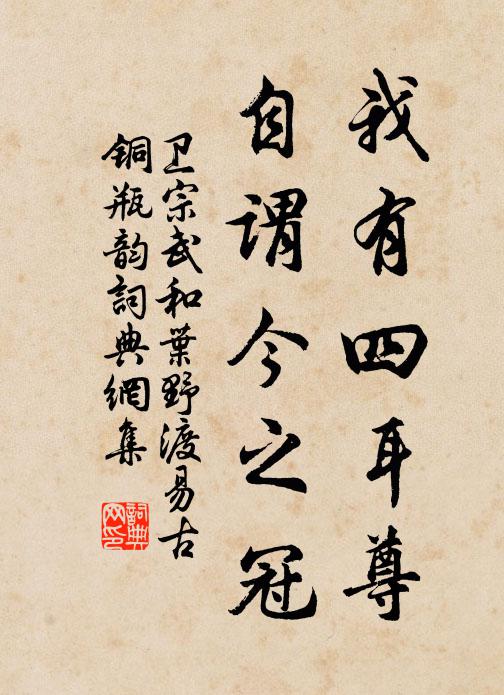 我有四耳尊
自谓今之冠
卫宗武和葉野渡易古
铜瓶韵詞典網集
詞典
网印